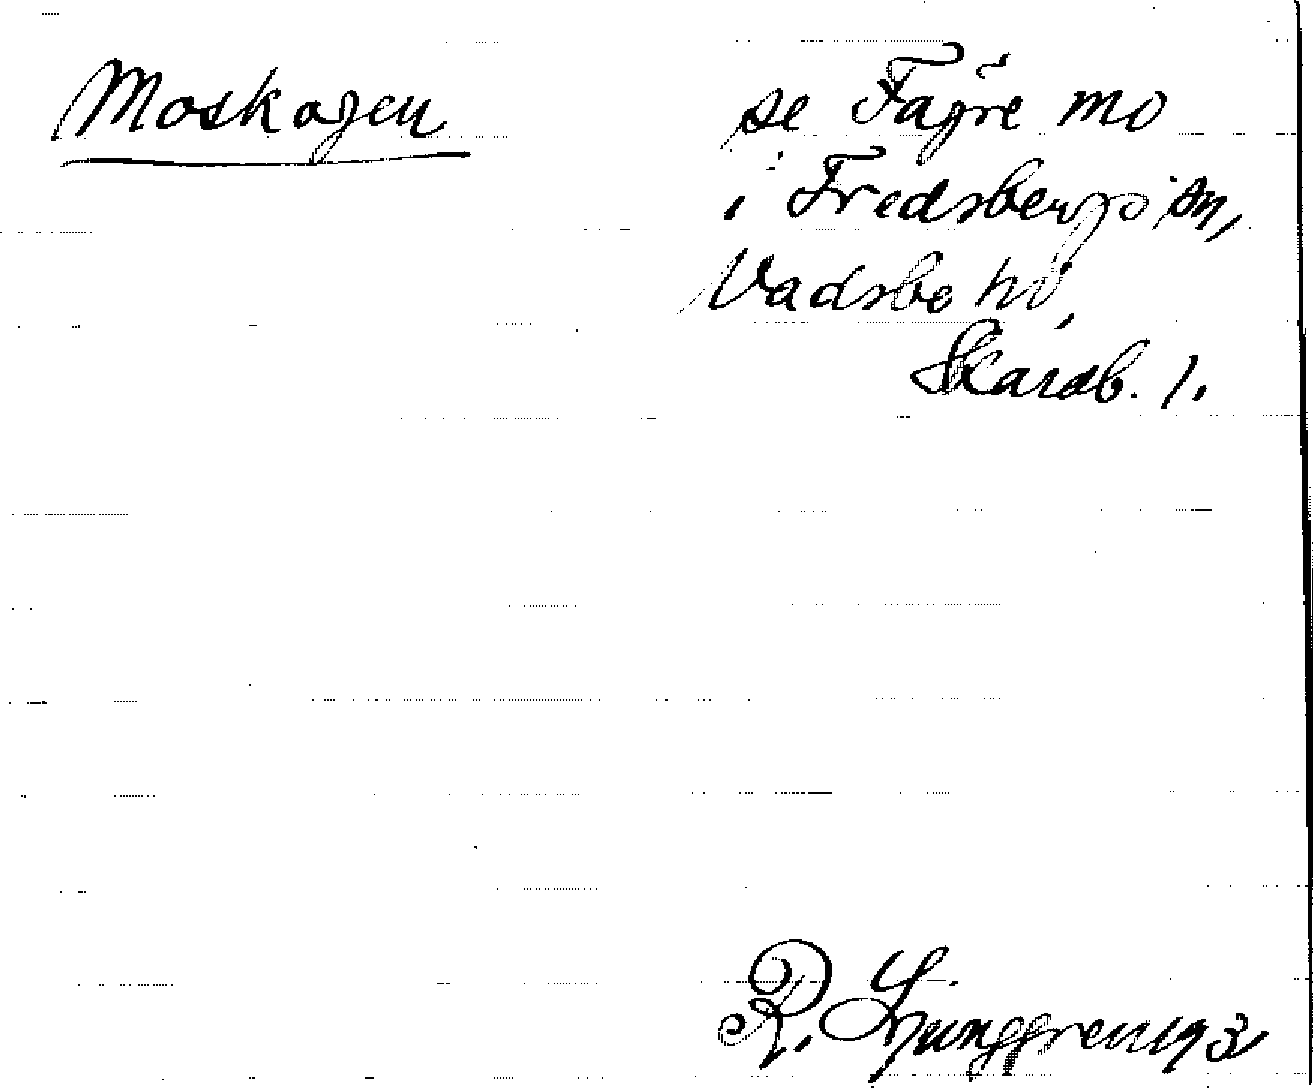 Moskogen
se Fägre mo
i Fredsbergs sn,
Vadsbo hd,
Skarab. l.
R. Ljunggren 193